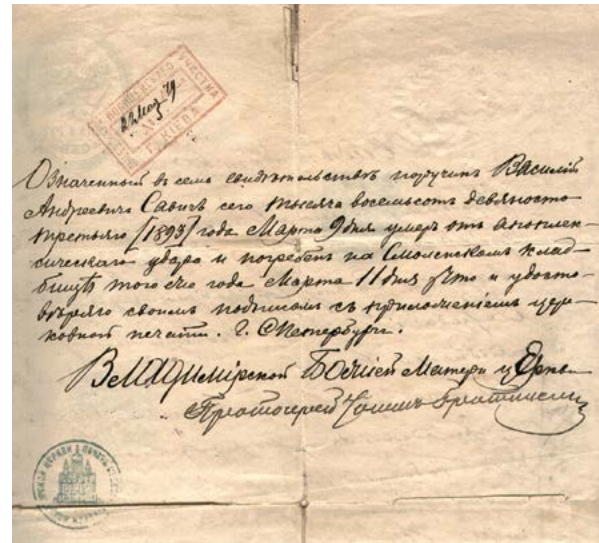 УЧАСТКА
Г. КІЕВА
Означенный въ семъ свидѣтельствѣ поручикъ Василій
Андреевичъ Савичъ сего тысяча восемьсотъ девяносто
третьяго [1893] года Марта 9 дня умеръ отъ апоплек-
сическаго удара и погребенъ на Смоленскомъ клад-
бищѣ того же года Марта 11 дня что и удосто-
вѣряю своимъ подписомъ съ приложеніемъ цер-
ковной печати. Г. С.Петербургъ.
Владимірской Божіей Матери церкви
Протоіерей